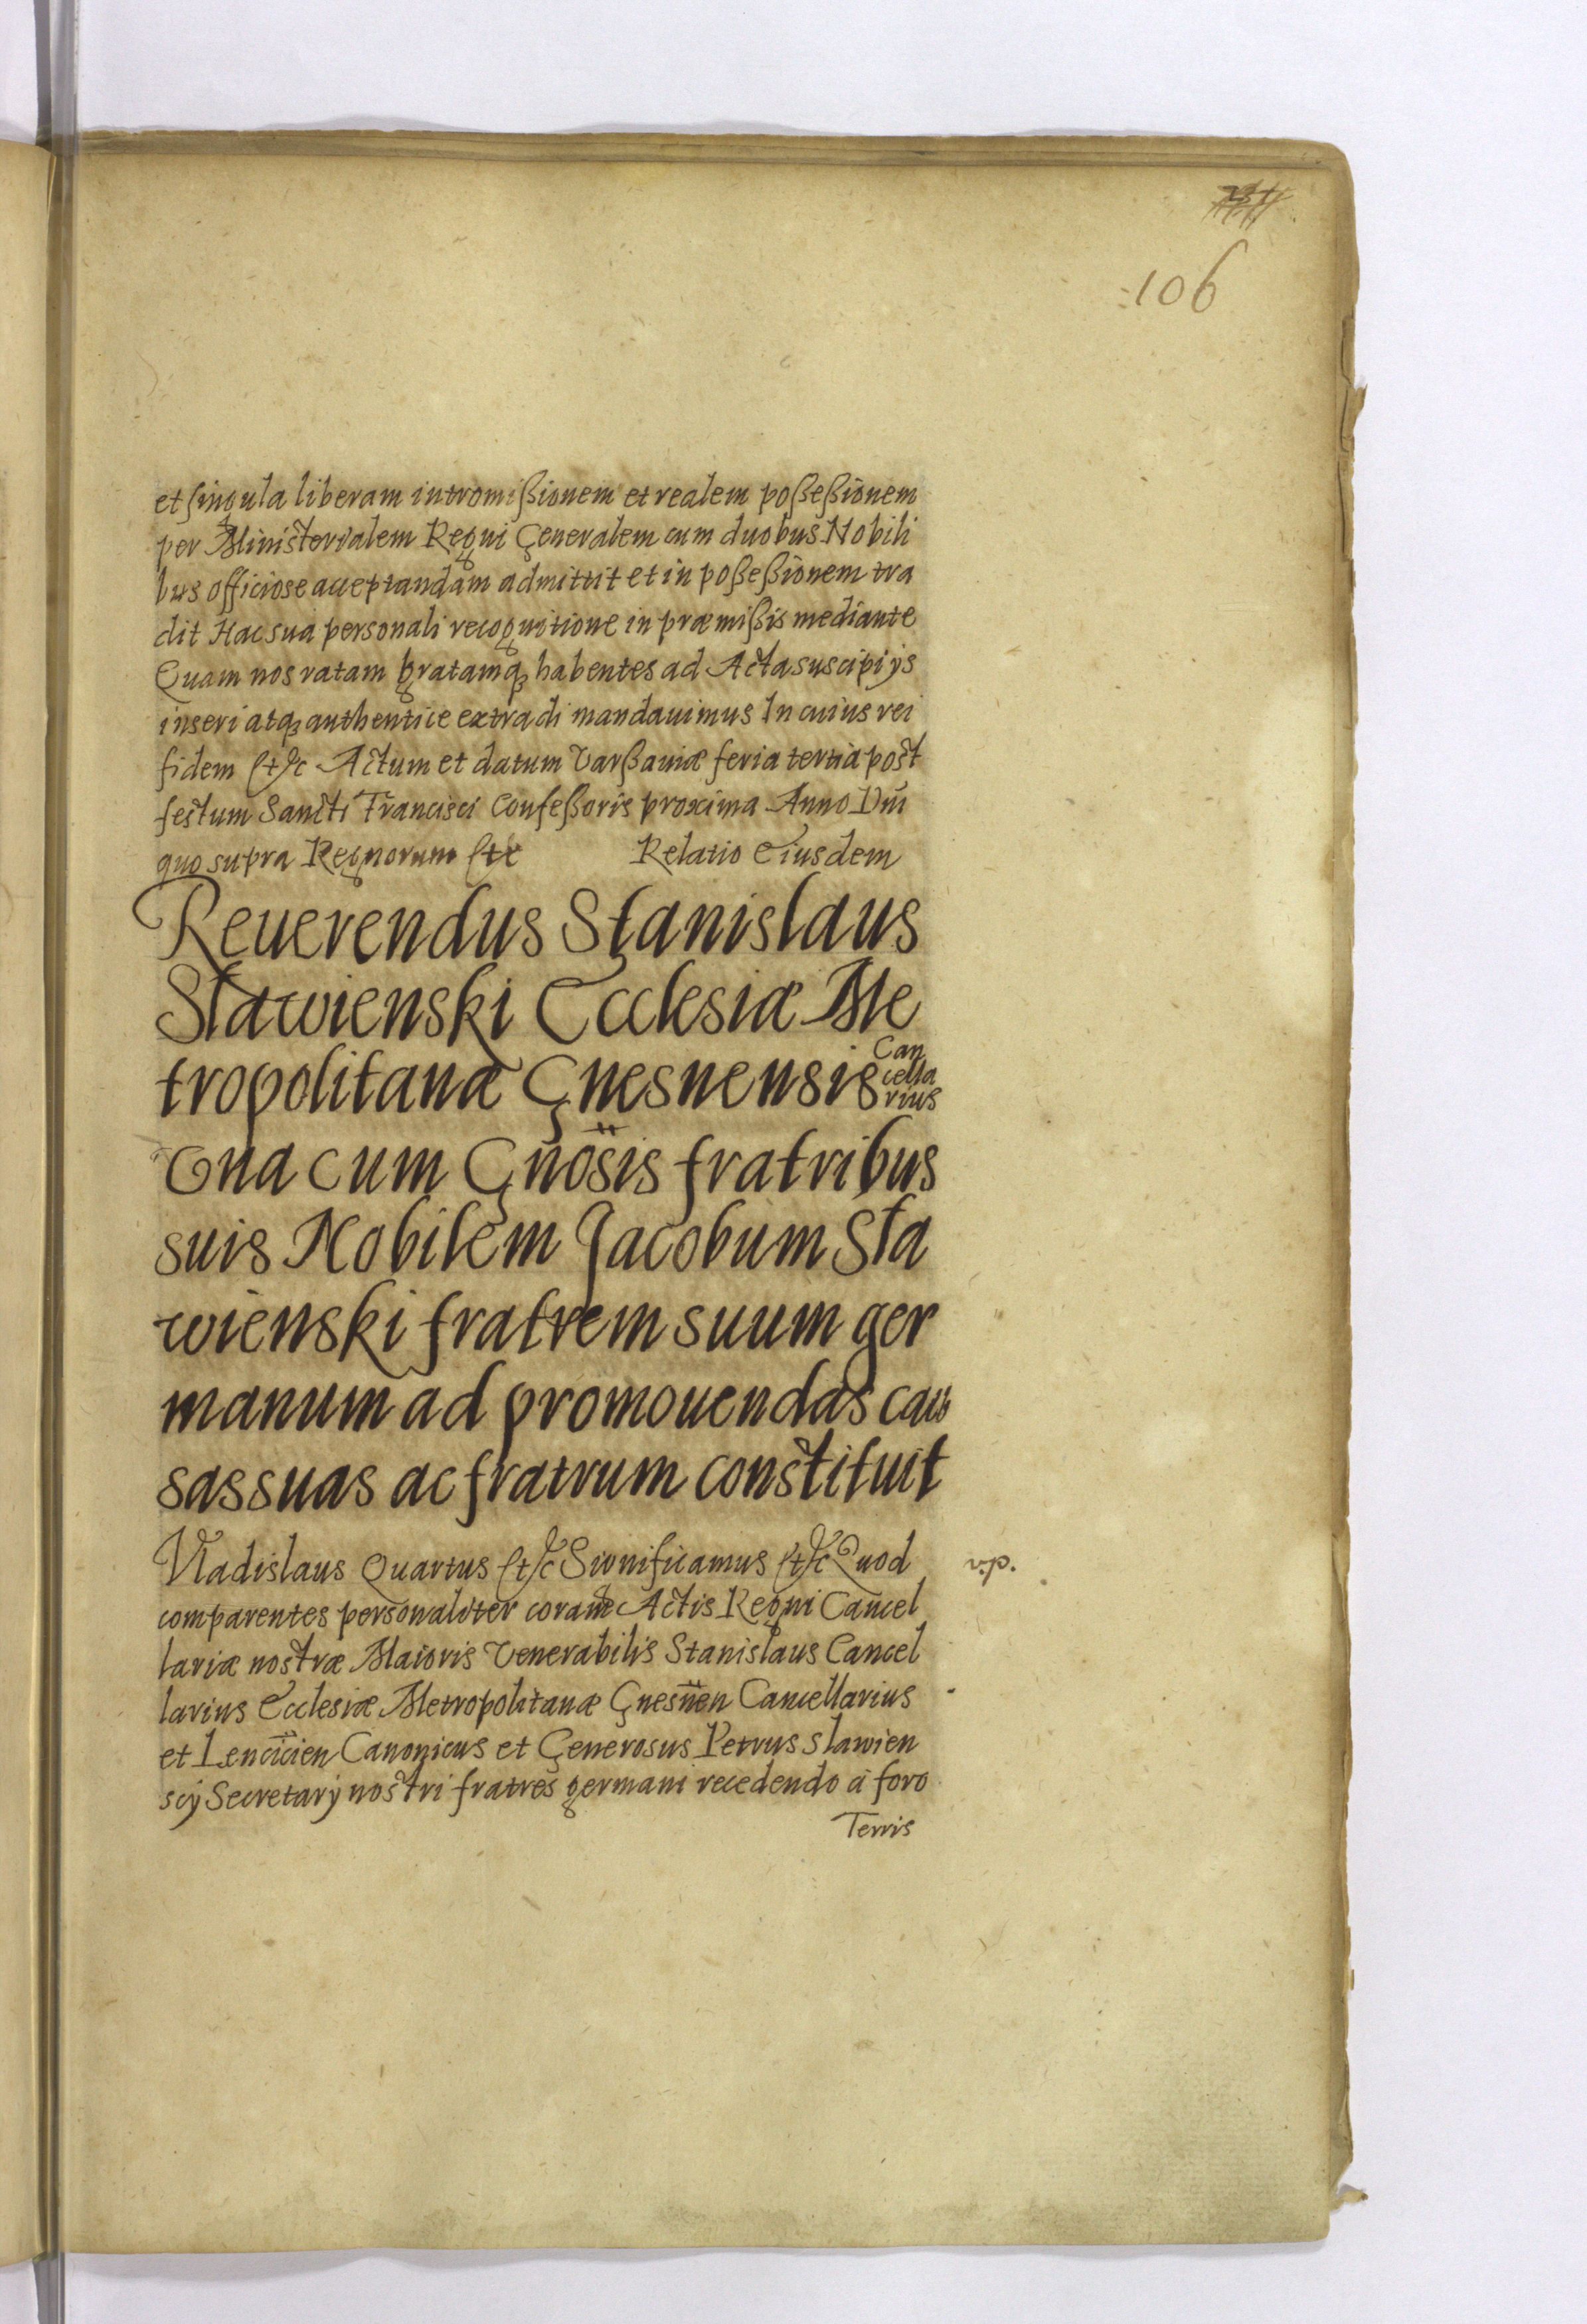 106
et singula liberam intromißionem et realem poßeßionem
per Ministerialem Regni Generalem cum duobus Nobili
bus officiose acceptandam admittit et in poßeßionem tra
dit Hac sua personali recognitione in præmißis mediante
Quam nos ratam gratamq₃ habentes ad Acta suscipi ÿs
inseri atq₃ authentice extradi mandauimus In cuius rei
fidem etc Actum et datum Varßauiæ feria tertia post
festum Sancti Francisci Confeßoris proxima Anno Dni
quo supra Regnorum etc Relatio Eiusdem
Reuerendus Stanislaus
Slawienski Ecclesiæ Me
tropolitanæ Gnesnensis Can
cella
rius
Vna cum Gnosis fratribus
suis Nobilem Jacobum Sla
wienski fratrem suum ger
manum ad promouendas cau
sas suas ac fratrum constituit
Vladislaus Quartus etc Significamus etc Quod
comparentes personaliter coram Actis Regni Cancel
lariæ nostræ Maioris Venerabilis Stanislaus Cancel
larius Ecclesiæ Metropolitanæ Gnesnen Cancellarius
et Lencicien Canonicus et Generosus Petrus Slawien
scÿ Secretarÿ nostri fratres germani recedendo à foro
Terris